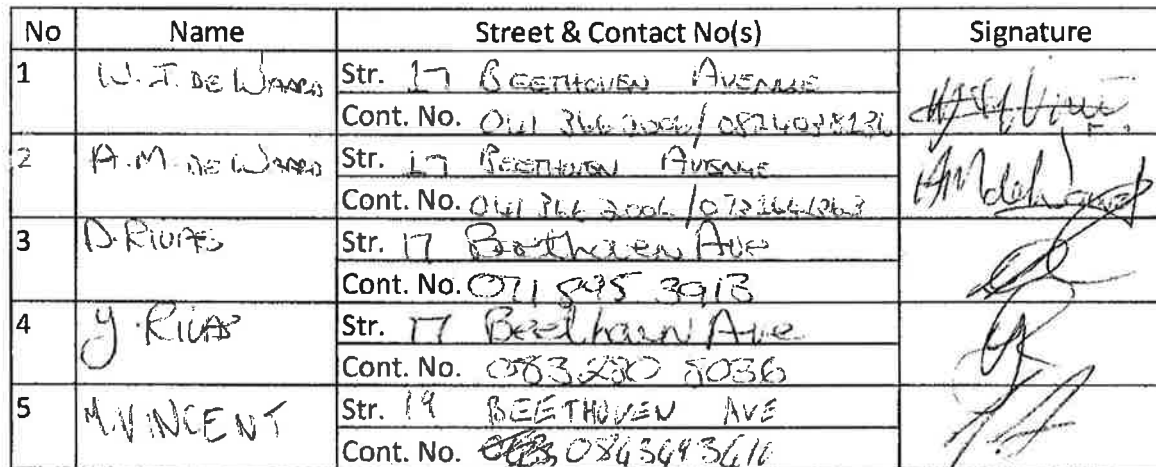 No Name Street & Contact No(s) Signature
1 W.J. DE WAARD Str. 17 BEETHOVEN AVENUE
Cont. No. 041 366 2006 /
2 A.M. DE WAARD Str. 17 BEETHOVEN AVENUE AM de Waard
Cont. No. 041 366 2006 /
3 D. RIVAS Str. 17 Beethoven Ave
Cont. No. 071 895 3913
4 Y. RIVAS Str. 17 Beethoven Ave
Cont. No. 083 280 8036
5 M. VINCENT Str. 19 BEETHOVEN AVE
Cont. No.